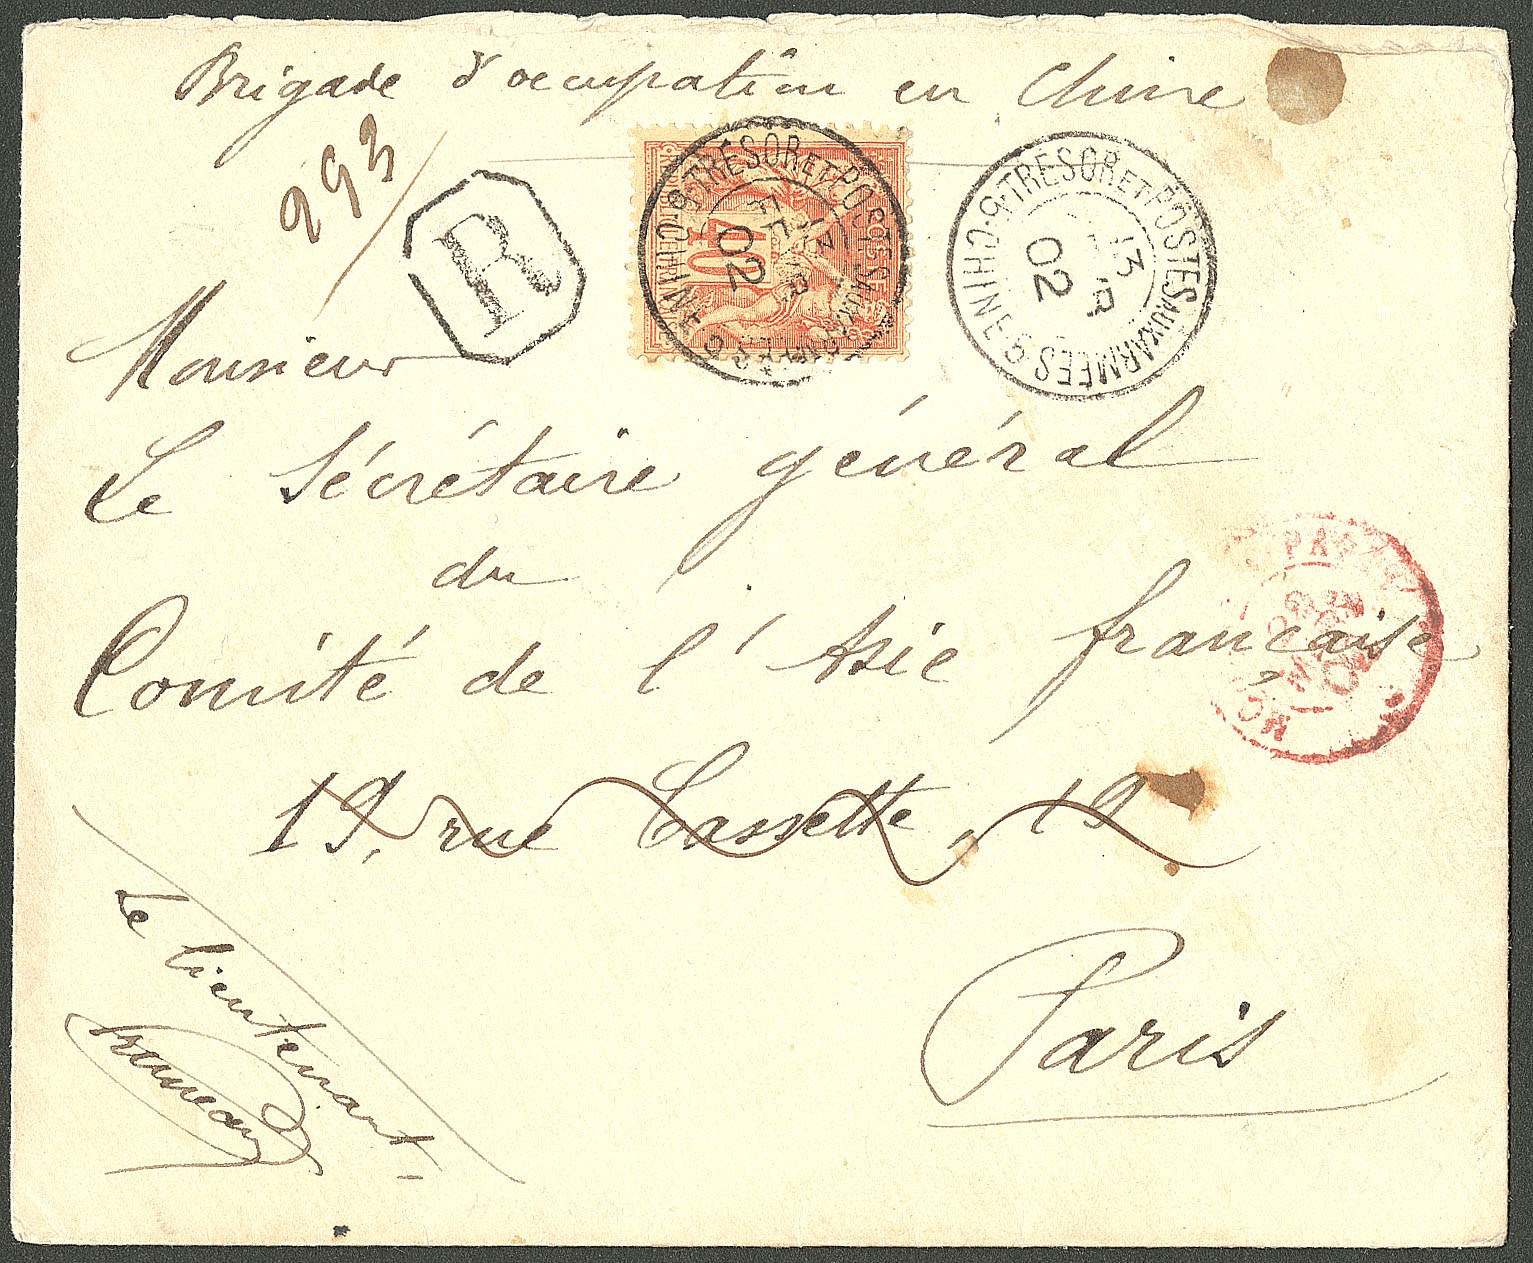 Brigade d'occupation en Chine
293
R
TRÉSOR ET POSTES AUX ARMÉES CHINE
40
02
TRÉSOR ET POSTES AUX ARMÉES 5 CHINE 5
13
02
Monsieur
Le Sécrétaire général
du
Comité de l'Asie française
19, rue Cassette, 19
Paris
Le lieutenant